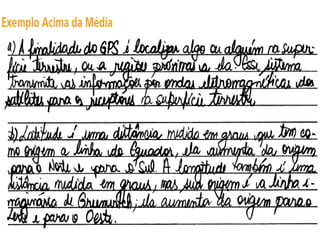 Exemplo Acima da Média
a) A finalidade do GPS é localizar algo ou alguém na super-
fície terrestre, ou a regiões próximas a ela. Esse sistema
transmite as informações por ondas eletromagnéticas dos
satélites para os receptores na superfície terrestre.
b) Latitude é uma distância medida em graus que tem co-
mo origem a linha do Equador, ela aumenta da origem
para o Norte e para o Sul. A longitude também é uma
distância medida em graus, mas sua origem é a linha i-
maginária de Greenwich; ela aumenta da origem para o
Leste e para o Oeste.